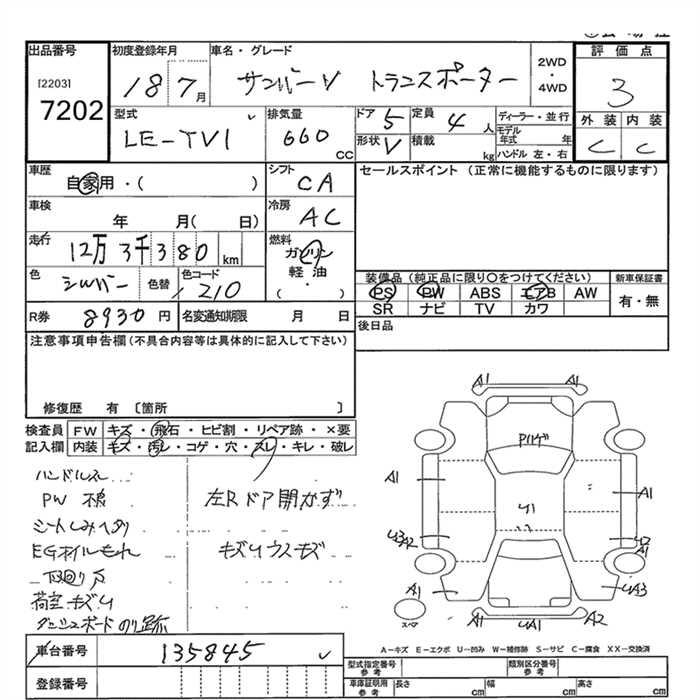 出品番号
[2203]
7202
初度登録年月
18 7月
車名・グレード
サンバーV トランスポーター
2WD
・
4WD
評価点
3
型式
LE-TV1
排気量
660
CC
ドア 5
定員 4 人
形状 V
積載 kg
ディーラー・並行
モデル年式 年
ハンドル 左・右
外装 内装
C C
車歴
自家用・( )
シフト
CA
車検
年 月( 日)
冷房
AC
走行
12万3千380 km
燃料
ガソリン
軽油
( )
色
シルバー
色替
色コード
210
R券 8930円
名変通知期限 月 日
セールスポイント (正常に機能するものに限ります)
装備品(純正品に限り○をつけてください)
PS PW ABS エアB AW
SR ナビ TV カワ
新車保証書
有・無
後日品
注意事項申告欄(不具合内容等は具体的に記入して下さい)
修復歴 有 〔箇所 〕
検査員記入欄
FW キズ・飛石・ヒビ割・リペア跡・×要
内装 キズ・汚レ・コゲ・穴・スレ・キレ・破レ
ハンドルスレ
PW 様
シートしみへたり
EGオイルもれ
下回りサ
荷室キズU
ダッシュボードのり跡
左Rドア開かず
キズUウスキズ
A1 A1
Pハゲ
A1 A1
U1
U3A2 U2
A1
A1 UA3
スペア
UA1 A2
A-キズ E-エクボ U-凹み W-補修跡 S-サビ C-腐食 XX-交換済
車台番号 135845
登録番号
型式指定番号
参考
類別区分番号
参考
車庫証明用
参考
長さ cm
幅 cm
高さ cm